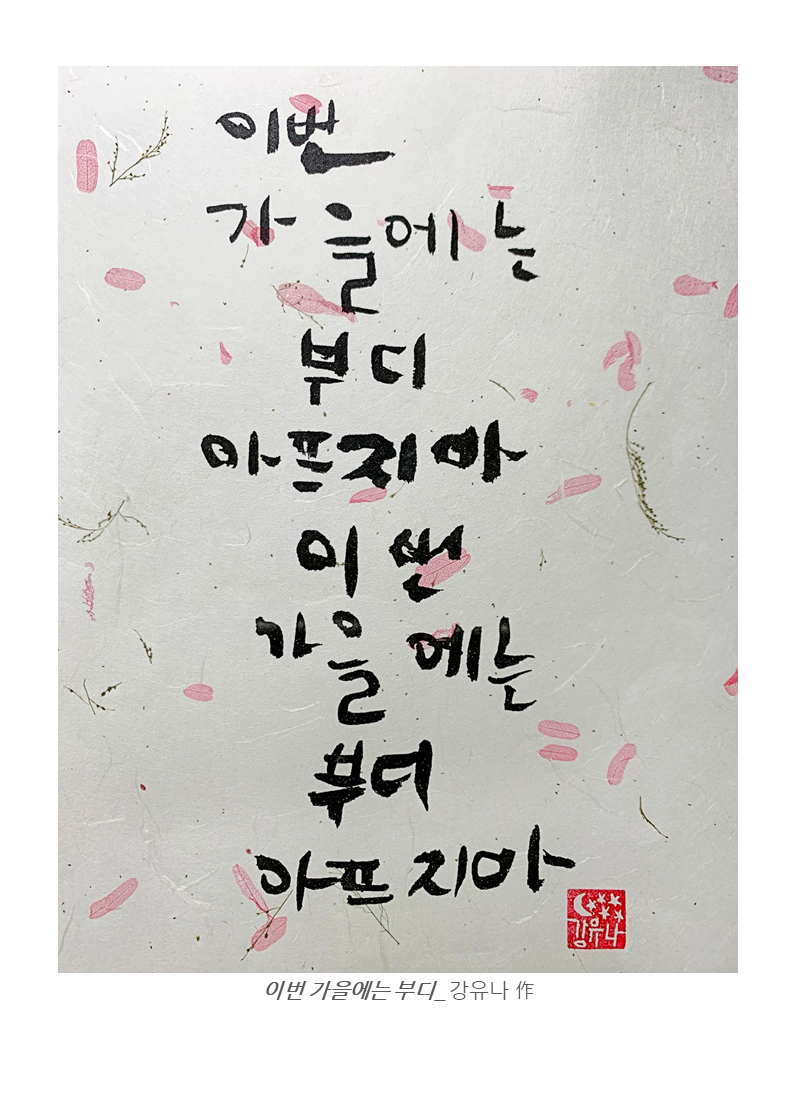 이번
가을에는
부디
아프지마
이번
가을에는
부디
아프지마
강유나
이번 가을에는 부디_ 강유나 作